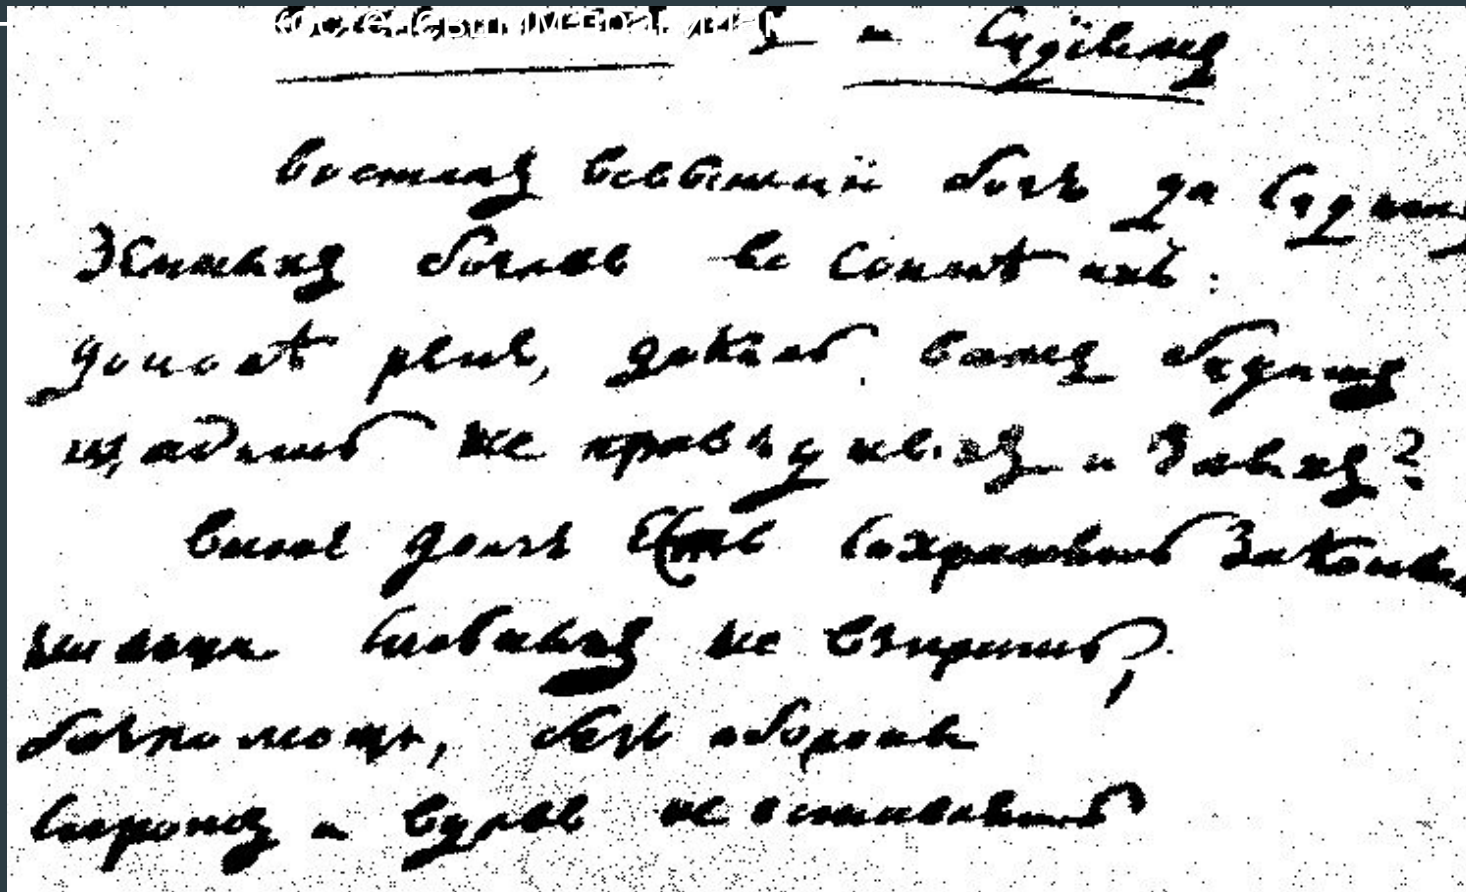 и Судіямъ
Востал всевышній богъ да судитъ
Земныхъ боговъ во сонмѣ ихъ:
доколѣ рекъ, доколь вамъ будетъ
щадить неправедныхъ и злыхъ?
Вашъ долгъ есть сохранять законы
на лица сильныхъ не взирать,
безъ помощи, безъ обороны
сиротъ и вдовъ не оставлять